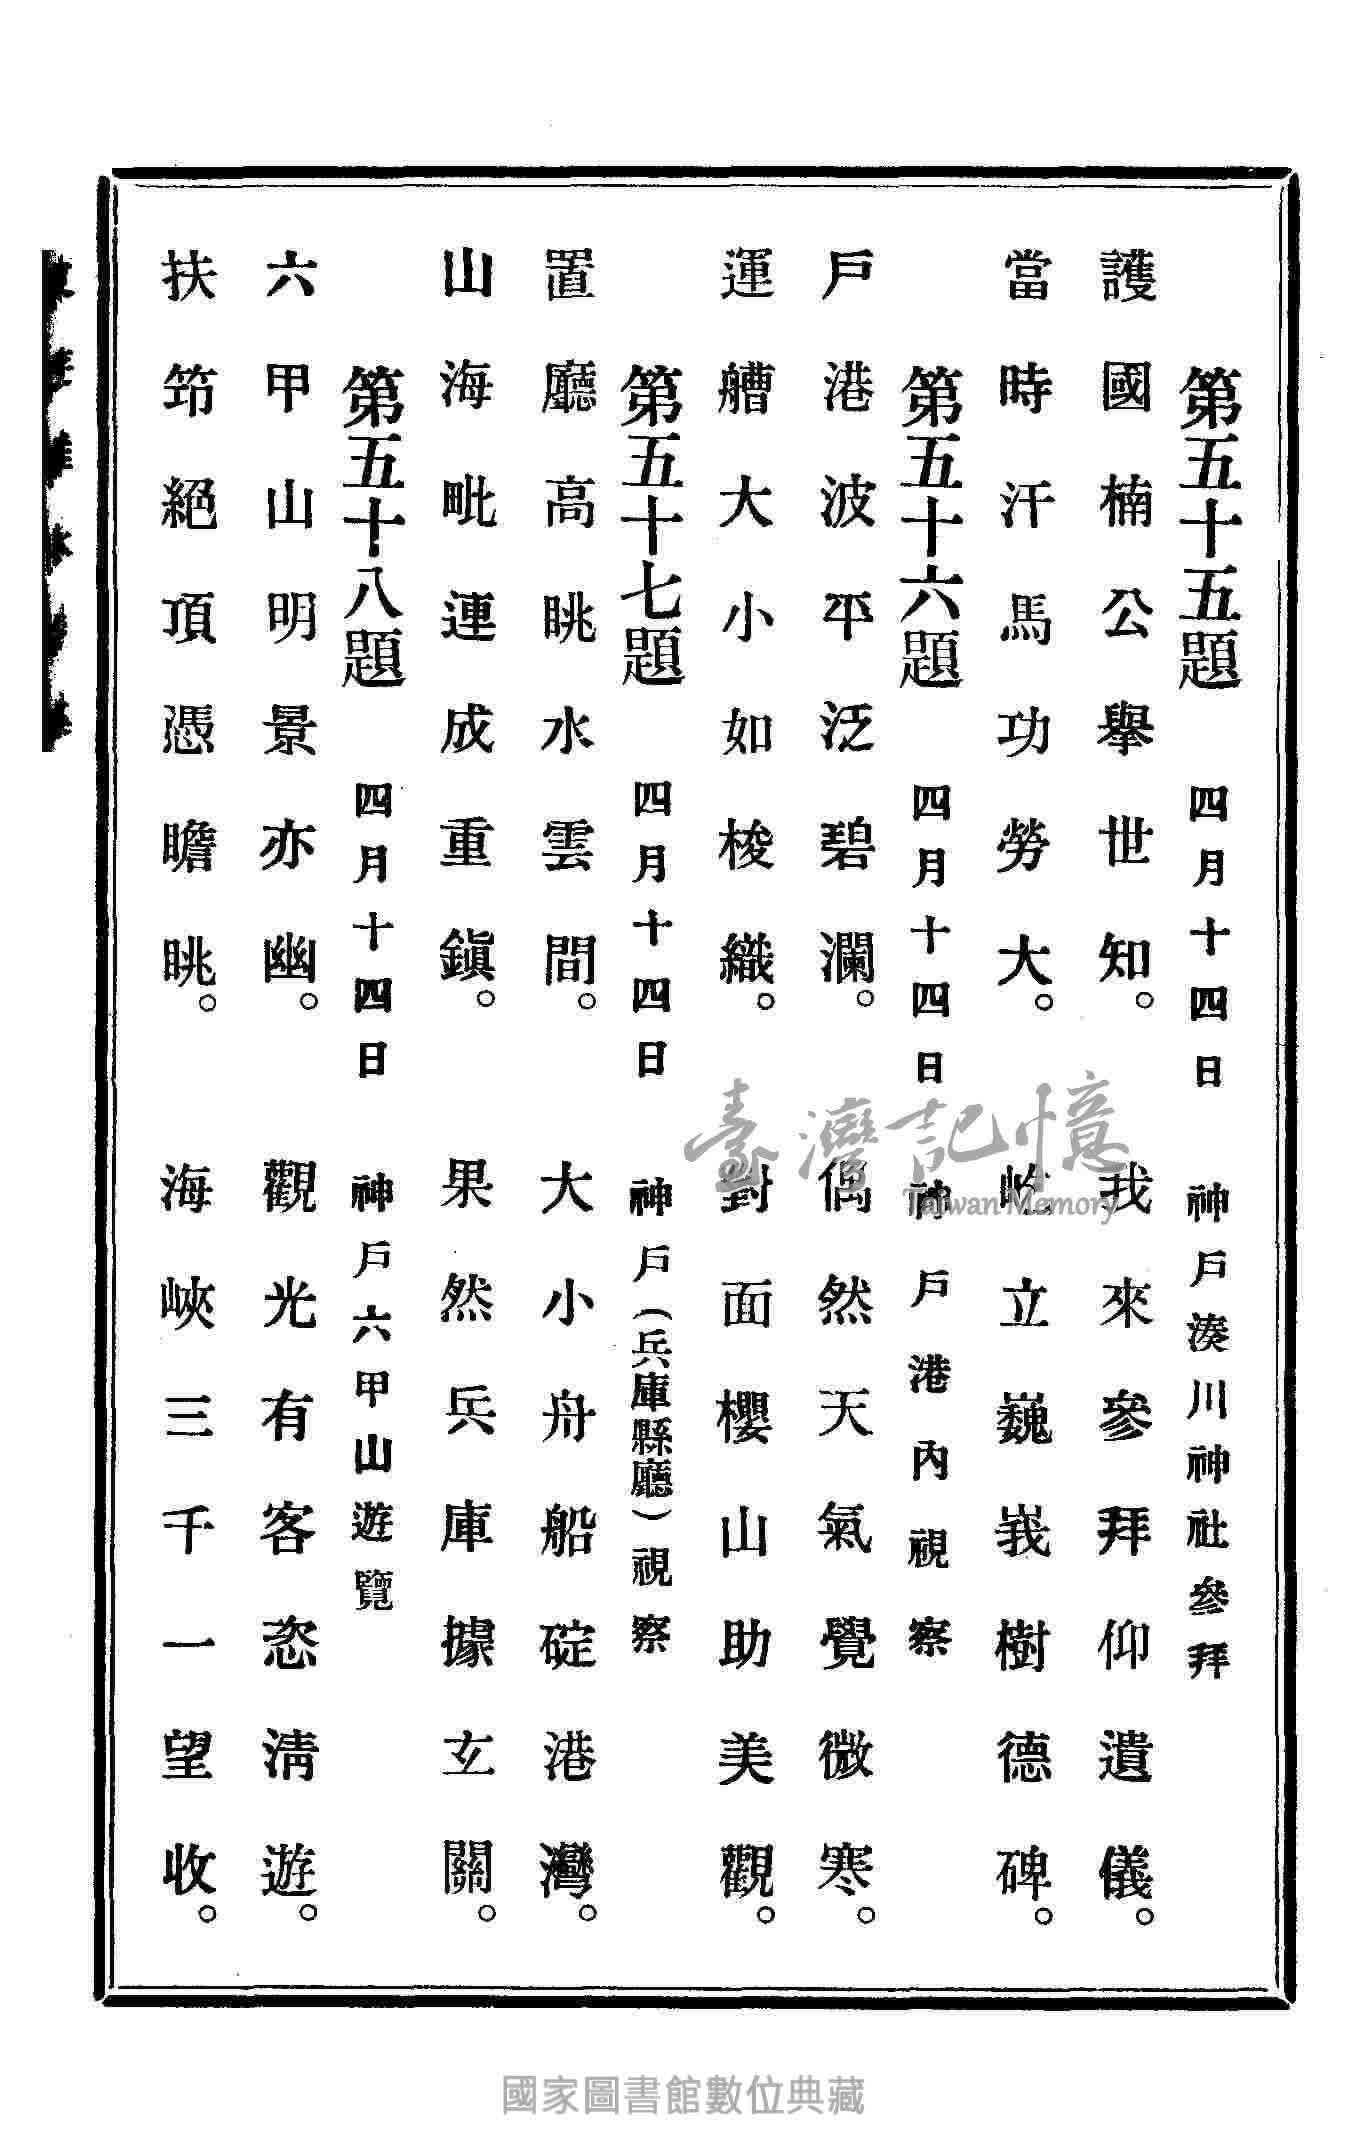 第五十五題 四月十四日 神戶湊川神社參拜
護國楠公舉世知。 我來參拜仰遺儀。
當時汗馬功勞大。 屹立巍峩樹德碑。
第五十六題 四月十四日 神戶港內視察
戶港波平泛碧瀾。 偶然天氣覺微寒。
運艚大小如梭織。 對面櫻山助美觀。
第五十七題 四月十四日 神戶(兵庫縣廳)視察
置廳高眺水雲間。 大小舟船碇港灣。
山海毗連成重鎭。 果然兵庫據玄關。
第五十八題 四月十四日 神戶六甲山遊覽
六甲山明景亦幽。 觀光有客恣淸遊。
扶筇絕頂憑瞻眺。 海峽三千一望收。
臺灣記憶
Taiwan Memory
國家圖書館數位典藏